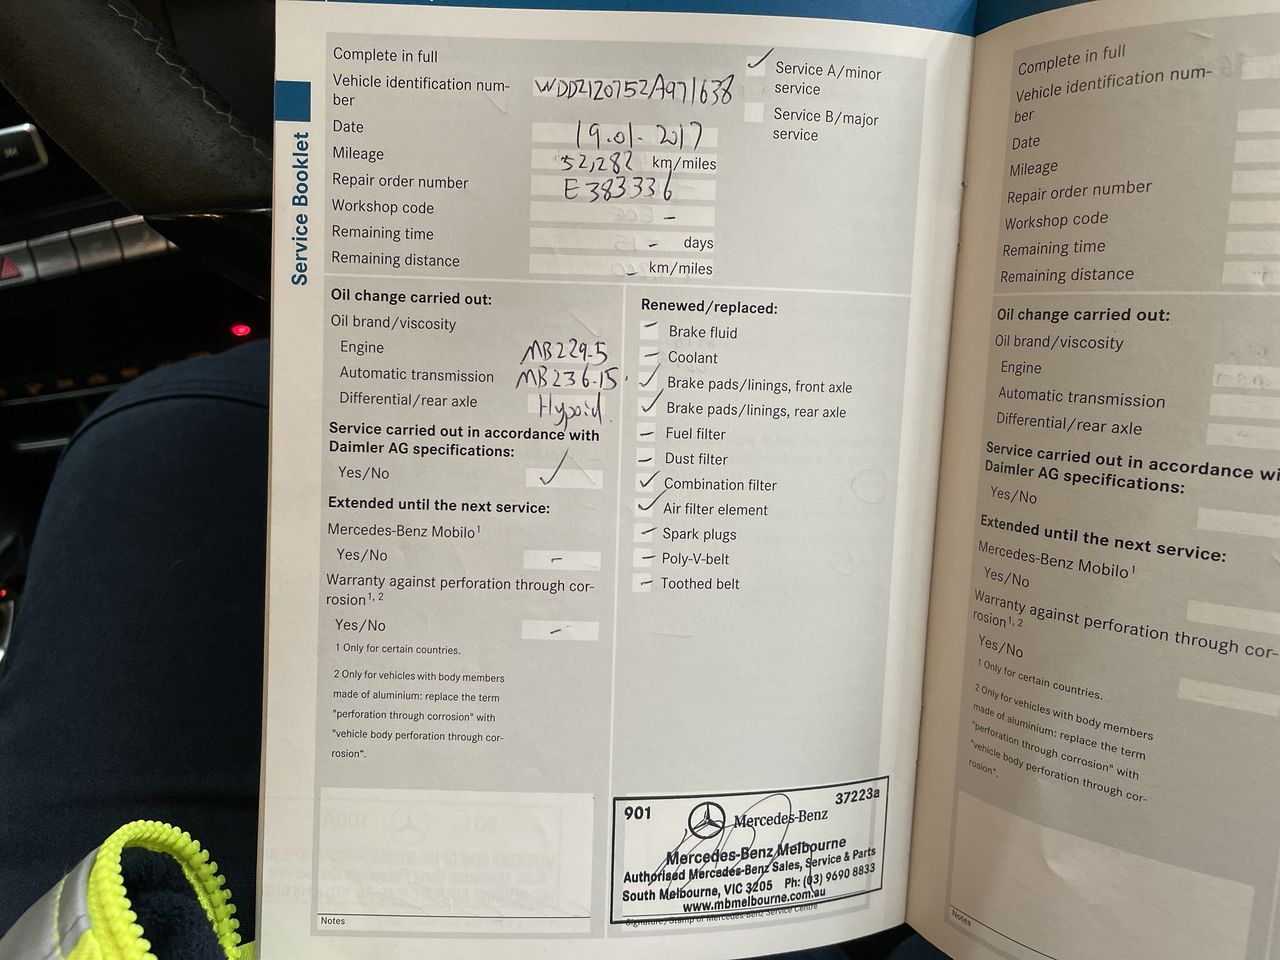 Service Booklet
Complete in full
Vehicle identification num-
ber WDD2120752A971638
Date 19.01-2017
Mileage 52,282 km/miles
Repair order number E383336
Workshop code -
Remaining time - days
Remaining distance - km/miles
✓ Service A/minor
service
Service B/major
service
Oil change carried out:
Oil brand/viscosity
Engine MB229.5
Automatic transmission MB236.15
Differential/rear axle Hypoid
Service carried out in accordance with
Daimler AG specifications:
Yes/No ✓
Extended until the next service:
Mercedes-Benz Mobilo¹
Yes/No -
Warranty against perforation through cor-
rosion¹, ²
Yes/No -
1 Only for certain countries.
2 Only for vehicles with body members
made of aluminium: replace the term
"perforation through corrosion" with
"vehicle body perforation through cor-
rosion".
Notes
Renewed/replaced:
- Brake fluid
- Coolant
✓ Brake pads/linings, front axle
✓ Brake pads/linings, rear axle
- Fuel filter
- Dust filter
✓ Combination filter
✓ Air filter element
- Spark plugs
- Poly-V-belt
- Toothed belt
901 37223a
Mercedes-Benz
Mercedes-Benz Melbourne
Authorised Mercedes-Benz Sales, Service & Parts
South Melbourne, VIC 3205 Ph: (03) 9690 8833
www.mbmelbourne.com.au
Signature/Stamp of Mercedes-Benz Service Centre
Complete in full
Vehicle identification num-
ber
Date
Mileage
Repair order number
Workshop code
Remaining time
Remaining distance
Oil change carried out:
Oil brand/viscosity
Engine
Automatic transmission
Differential/rear axle
Service carried out in accordance wi
Daimler AG specifications:
Yes/No
Extended until the next service:
Mercedes-Benz Mobilo¹
Yes/No
Warranty against perforation through cor-
rosion¹, ²
Yes/No
1 Only for certain countries.
2 Only for vehicles with body members
made of aluminium: replace the term
"perforation through corrosion" with
"vehicle body perforation through cor-
rosion".
Notes